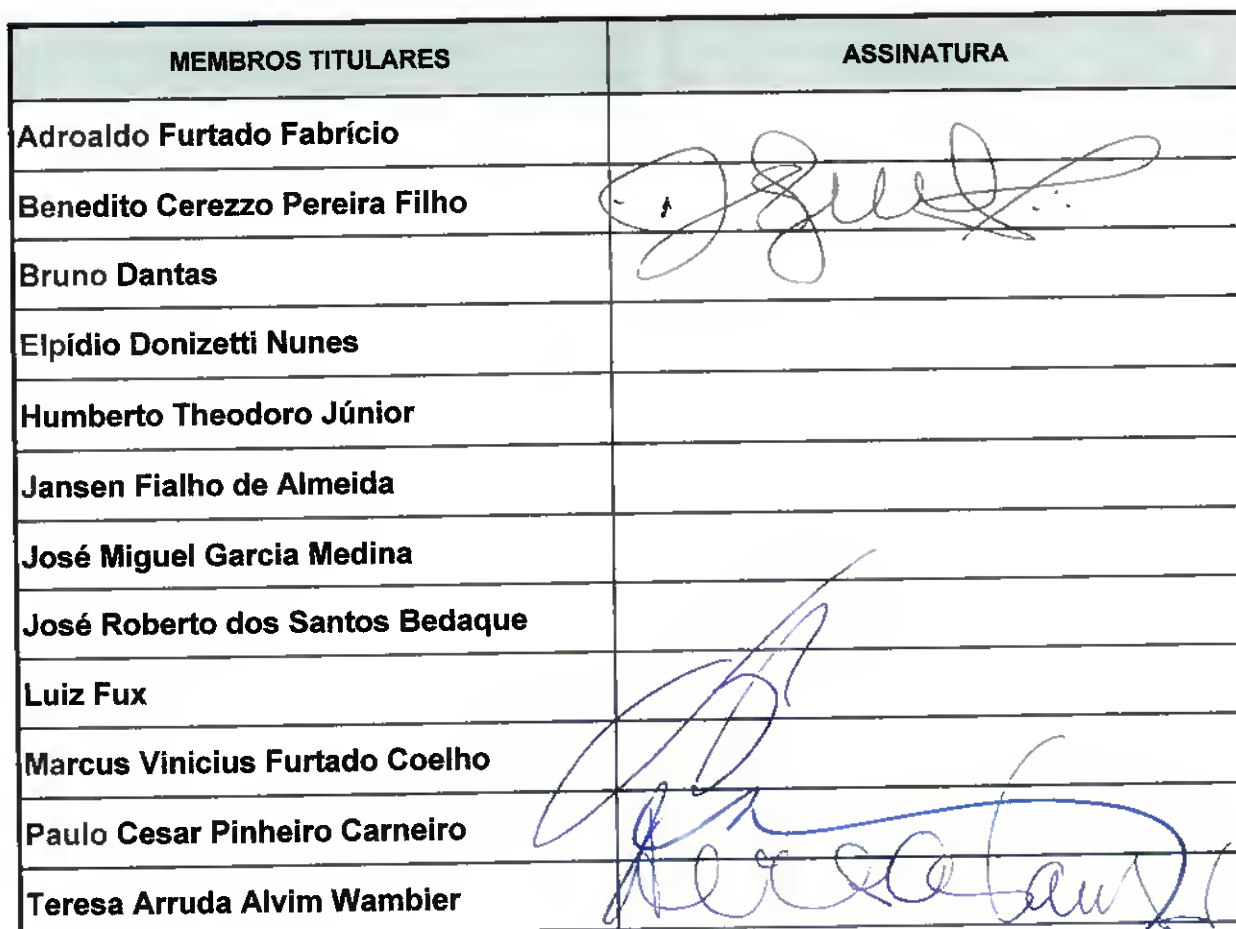 MEMBROS TITULARES ASSINATURA
Adroaldo Furtado Fabrício
Benedito Cerezzo Pereira Filho
Bruno Dantas
Elpídio Donizetti Nunes
Humberto Theodoro Júnior
Jansen Fialho de Almeida
José Miguel Garcia Medina
José Roberto dos Santos Bedaque
Luiz Fux
Marcus Vinicius Furtado Coelho
Paulo Cesar Pinheiro Carneiro
Teresa Arruda Alvim Wambier